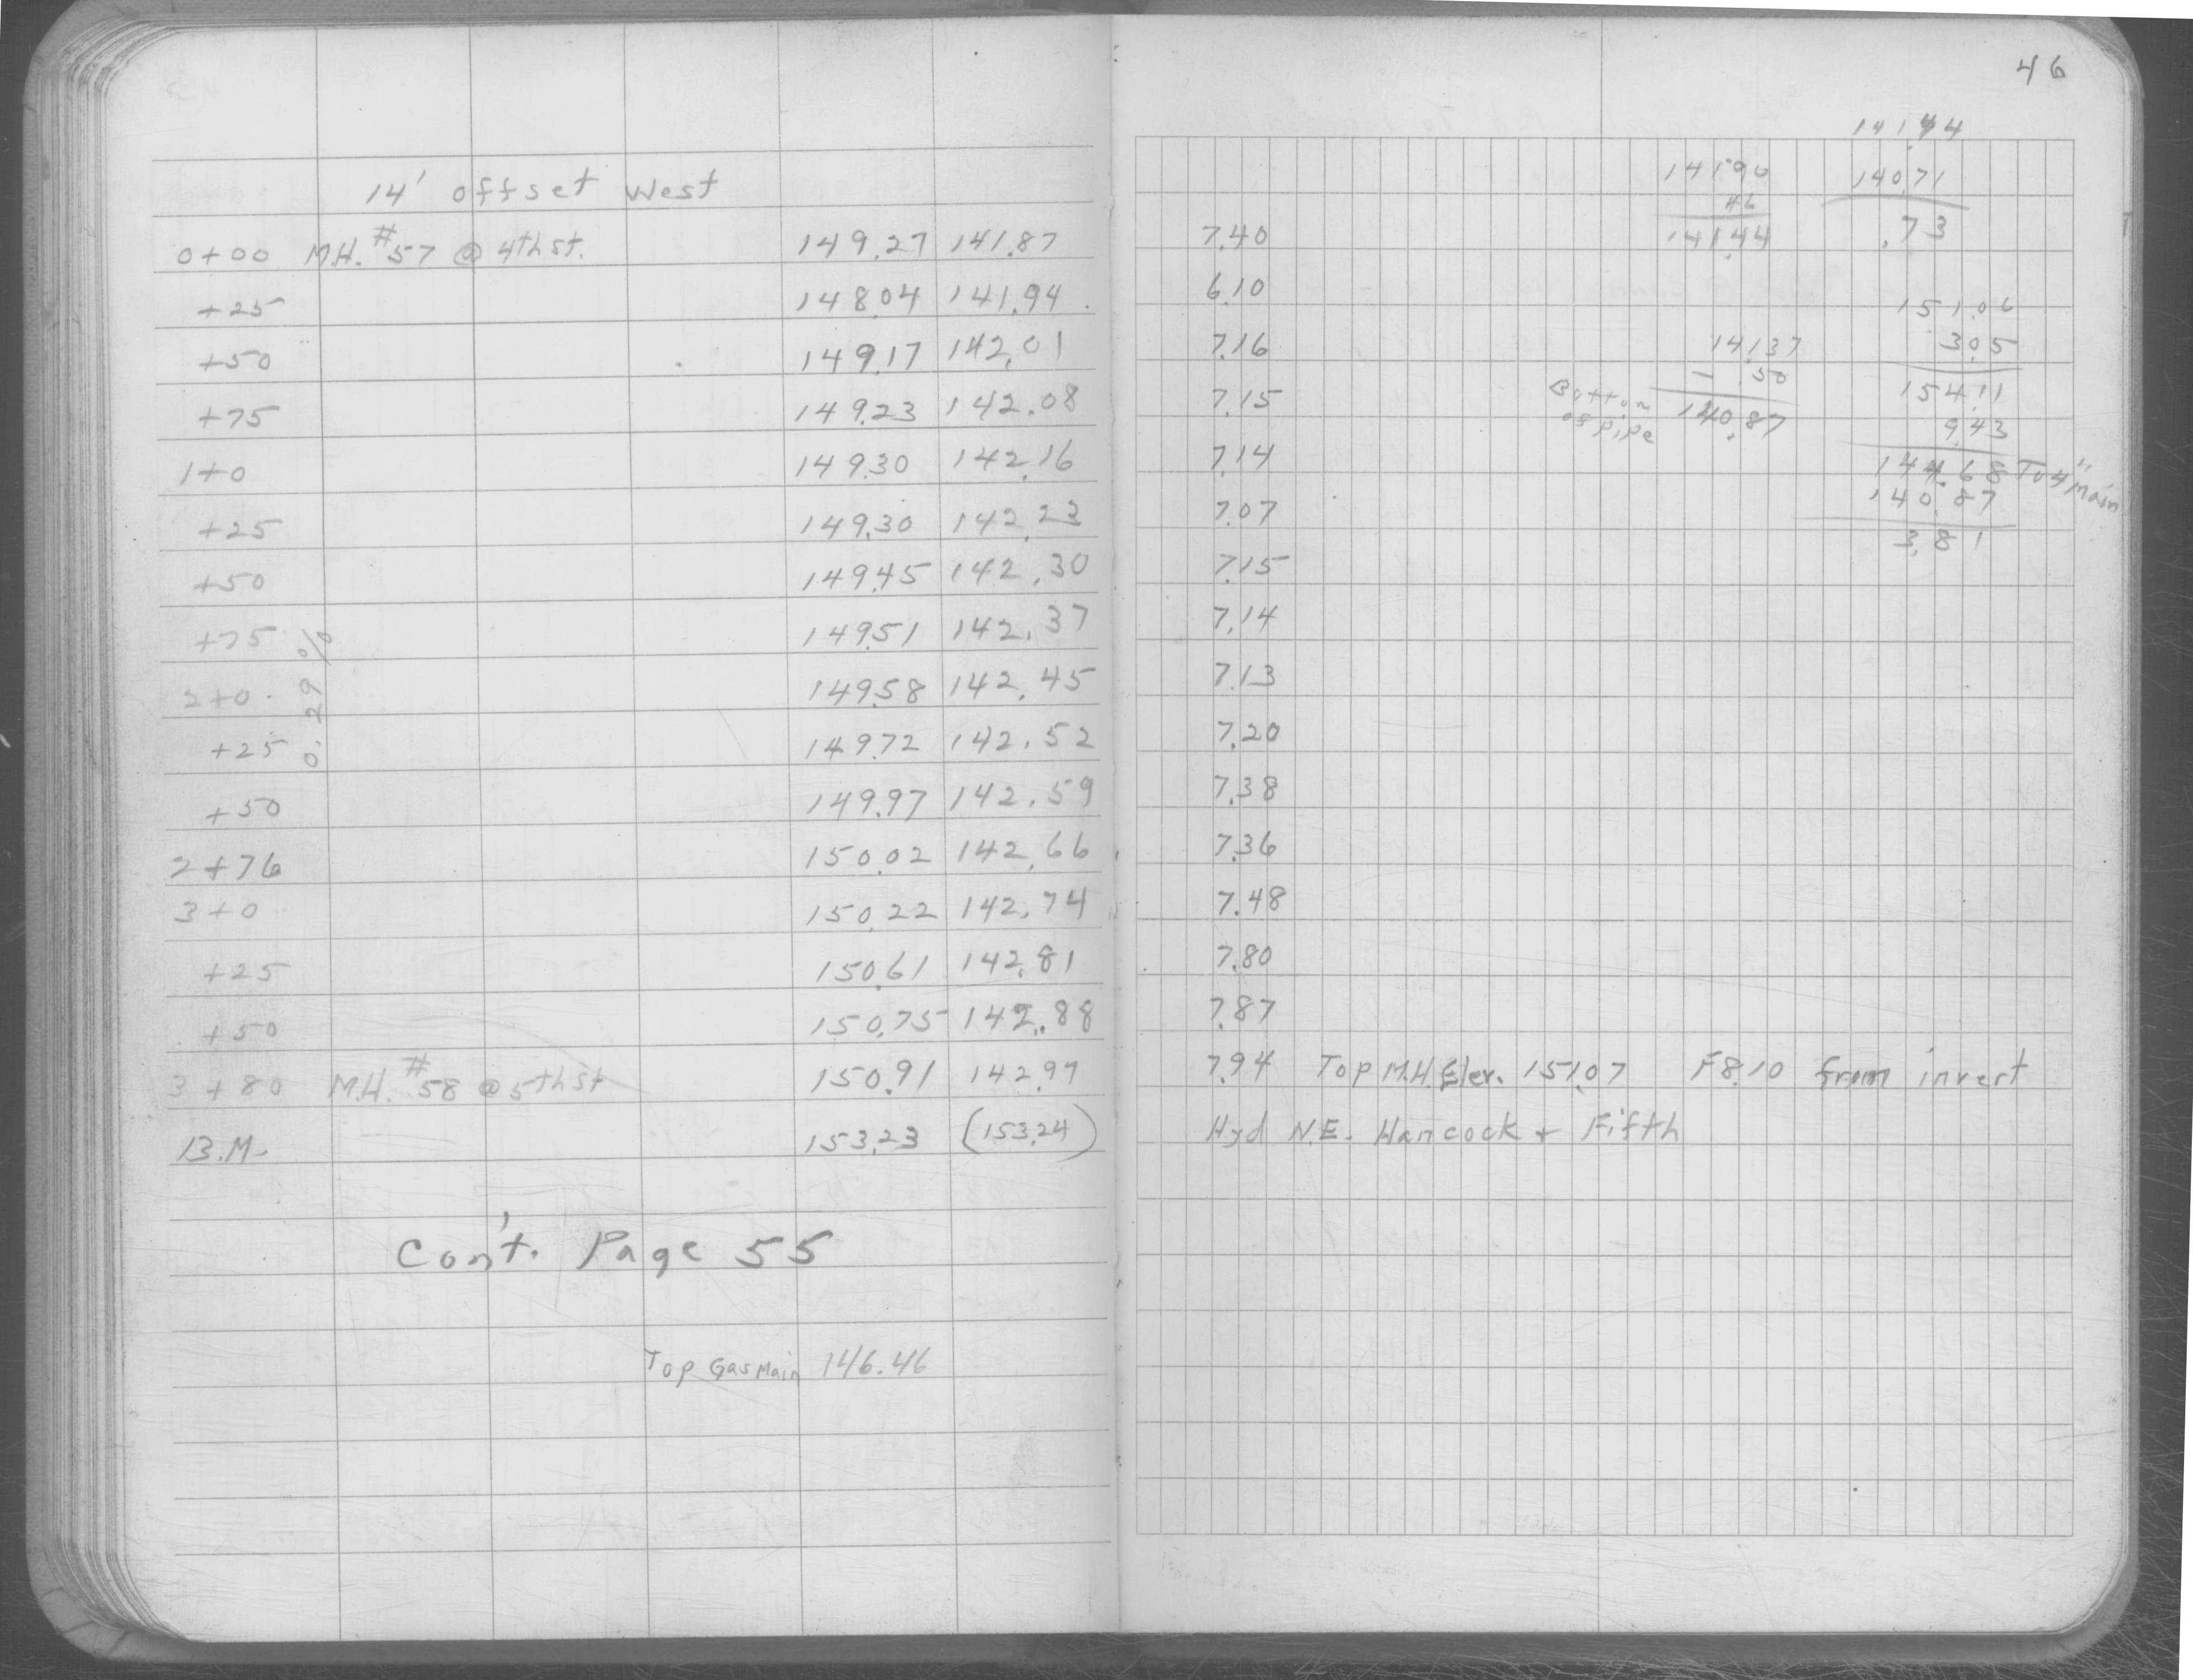 46
14' offset West
0+00 M.H. #57 @ 4th st. 149.27 141.87 7.40
+25 148.04 141.94 6.10
+50 149.17 142.01 7.16
+75 149.23 142.08 7.15
1+0 149.30 142.16 7.14
+25 149.30 142.23 7.07
+50 149.45 142.30 7.15
+75 149.51 142.37 7.14
2+0 149.58 142.45 7.13
+25 149.72 142.52 7.20
+50 149.97 142.59 7.38
2+76 150.02 142.66 7.36
3+0 150.22 142.74 7.48
+25 150.61 142.81 7.80
+50 150.75 142.88 7.87
3+80 M.H. #58 @ 5th st 150.91 142.97 7.94 Top M.H. Elev. 151.07 F8.10 from invert
B.M. 153.23 (153.24) Hyd N.E. Hancock + Fifth
0.29%
Con't. Page 55
Top Gas Main 146.46
141.90
46
141.44
141.44
140.71
.73
141.37
- .50
Bottom of pipe 140.87
151.06
3.05
154.11
9.43
144.68 To 4" Main
140.87
3.81